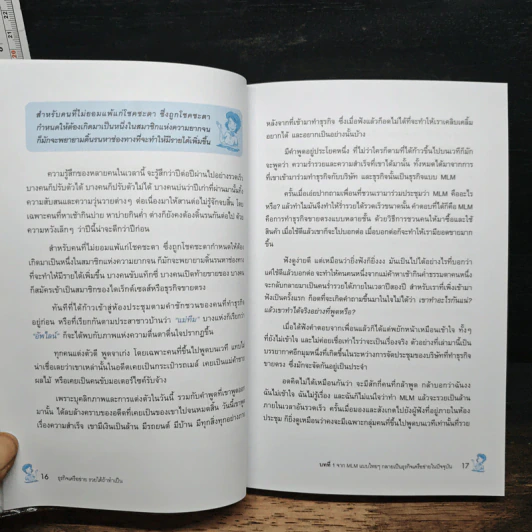 สำหรับคนที่ไม่ยอมแพ้แก่โชคชะตา ซึ่งถูกโชคชะตา
กำหนดให้ต้องเกิดมาเป็นหนึ่งในสมาชิกแห่งความยากจน
ก็มักจะพยายามดิ้นรนหาช่องทางที่จะทำให้มีรายได้เพิ่มขึ้น
ความรู้สึกของหลายคนในเวลานี้ จะรู้สึกว่าปีต่อปีผ่านไปอย่างรวดเร็ว
บางคนก็ปรับตัวได้ บางคนก็ปรับตัวไม่ได้ บางคนบ่นว่าปีเก่าที่ผ่านมานั้นทั้ง
ความสับสนและความวุ่นวายต่างๆ ต่อเนื่องมาให้ตามต่อไม่รู้จักจบสิ้น โดย
เฉพาะคนที่หาเช้ากินบ่าย หาบ่ายกินค่ำ ต่างก็ยังคงต้องดิ้นรนกันต่อไป ด้วย
ความหวังเล็กๆ ว่าปีนี้น่าจะดีกว่าปีก่อน
สำหรับคนที่ไม่ยอมแพ้แก่โชคชะตา ซึ่งถูกโชคชะตากำหนดให้ต้อง
เกิดมาเป็นหนึ่งในสมาชิกแห่งความยากจน ก็มักจะพยายามดิ้นรนหาช่องทาง
ที่จะทำให้มีรายได้เพิ่มขึ้น บางคนขับแท็กซี่ บางคนเปิดท้ายขายของ บางคน
ก็สมัครเข้าเป็นสมาชิกของไดเร็กต์เซลส์หรือธุรกิจขายตรง
ทันทีที่ได้ก้าวเข้าสู่ห้องประชุมตามคำชักชวนของคนที่ทำธุรกิจ
อยู่ก่อน หรือที่เรียกกันตามประสาชาวบ้านว่า "แม่ทีม" บางแห่งก็เรียกว่า
"อัพไลน์" ก็จะได้พบกับภาพแห่งความตื่นตาตื่นใจปรากฏขึ้น
ทุกคนแต่งตัวดี พูดจาเก่ง โดยเฉพาะคนที่ขึ้นไปพูดบนเวที แทบไม่
น่าเชื่อเลยว่าเขาเหล่านั้นในอดีตเคยเป็นกระเป๋ารถเมล์ เคยเป็นแม่ค้าขาย
ผลไม้ หรือเคยเป็นคนขับมอเตอร์ไซค์รับจ้าง
เพราะบุคลิกภาพและการแต่งตัวในวันนี้ รวมกับคำพูดที่เขาพูดออก
มานั้น ได้ลบล้างคราบของอดีตที่เคยเป็นของเขาไปจนหมดสิ้น วันนี้เขาพูด
เรื่องความสำเร็จ เขามีเงินเป็นล้าน มีรถยนต์ มีบ้าน มีทุกสิ่งทุกอย่าง
16 ธุรกิจเครือข่าย รายได้ถ้าทำเป็น
หลังจากที่เข้ามาทำธุรกิจ ซึ่งเมื่อฟังแล้วก็อดไม่ได้ที่จะทำให้เราเคลิบเคลิ้ม
อยากได้ และอยากเป็นอย่างนั้นบ้าง
มีคำพูดอยู่ประโยคหนึ่ง ที่ไม่ว่าใครก็ตามที่ได้ก้าวขึ้นไปบนเวทีก็มัก
จะพูดว่า ความร่ำรวยและความสำเร็จที่เขาได้มานั้น ทั้งหมดได้มาจากการ
ที่เขาเข้ามาร่วมทำธุรกิจกับบริษัท และธุรกิจนั้นเป็นธุรกิจแบบ MLM
ครั้นเมื่อเอ่ยปากถามเพื่อนที่ชวนเรามาร่วมประชุมว่า MLM คืออะไร
หรือ? แล้วทำไมมันจึงทำให้ร่ำรวยได้รวดเร็วขนาดนั้น คำตอบที่ได้ก็คือ MLM
คือการทำธุรกิจขายตรงแบบหลายชั้น ด้วยวิธีการชวนคนให้มาซื้อและใช้
สินค้า เมื่อใช้ดีแล้วเขาก็จะไปบอกต่อ เมื่อบอกต่อก็จะทำให้เรามียอดขายมาก
ขึ้น
ฟังดูง่ายดี แต่เหมือนว่ายิ่งฟังก็ยิ่งงง มันจะเป็นไปได้อย่างไรที่บอกว่า
แค่ใช้ดีแล้วบอกต่อ จะทำให้คนคนหนึ่งจากแม่ค้าหาเช้ากินค่ำธรรมดาคนหนึ่ง
จะกลับกลายมาเป็นคนร่ำรวยได้ภายในเวลาปีสองปี สำหรับเราที่เพิ่งเข้ามา
ฟังเป็นครั้งแรก ก็อดที่จะเกิดคำถามขึ้นมาในใจไม่ได้ว่า เขาทำอะไรกันแน่?
แล้วเขาทำได้จริงอย่างที่พูดหรือ?
เมื่อได้ฟังคำตอบจากเพื่อนแล้วก็ได้แต่พยักหน้าเหมือนเข้าใจ ทั้งๆ
ที่ยังไม่เข้าใจ และไม่ค่อยเชื่อเท่าไรว่าจะเป็นเรื่องจริง ตัวอย่างที่เล่ามานี้เป็น
บรรยากาศอีกมุมหนึ่งที่เกิดขึ้นในระหว่างการจัดประชุมของบริษัทที่ทำธุรกิจ
ขายตรง ซึ่งมักจะจัดกันอยู่เป็นประจำ
อดคิดไม่ได้เหมือนกันว่า จะมีสักกี่คนที่กล้าพูด กล้าบอกว่าฉันงง
ฉันไม่เข้าใจ ฉันไม่รู้เรื่อง และฉันก็ไม่แน่ใจว่าทำ MLM แล้วจะรวยเป็นล้าน
ภายในเวลาอันรวดเร็ว ครั้นเมื่อมองและสังเกตไปยังผู้ฟังที่อยู่ภายในห้อง
ประชุม ก็ยิ่งดูเหมือนว่าคงจะมีเฉพาะกลุ่มคนที่ขึ้นไปพูดบนเวทีเท่านั้นที่รวย
บทที่ 1 จาก MLM แบบไทยๆ กลายเป็นธุรกิจเครือข่ายในปัจจุบัน 17